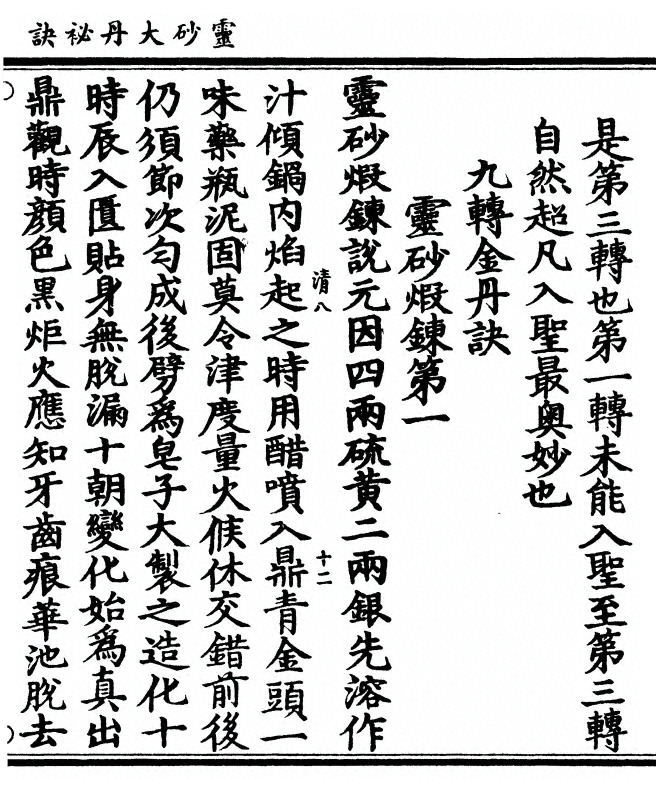 靈砂大丹祕訣
是第三轉也第一轉未能入聖至第三轉
自然超凡入聖最奧妙也
九轉金丹訣
靈砂煆鍊第一
靈砂煆鍊說元因四兩硫黄二兩銀先溶作
清八
十二
汁傾鍋内焰起之時用醋噴入鼎青金頭一
味藥瓶泥固莫令津度量火候休交錯前後
仍須節次勻成後劈爲皂子大製之造化十
時辰入匱貼身無脫漏十朝變化始爲真出
鼎觀時顔色黒炬火應知牙齒痕華池脫去